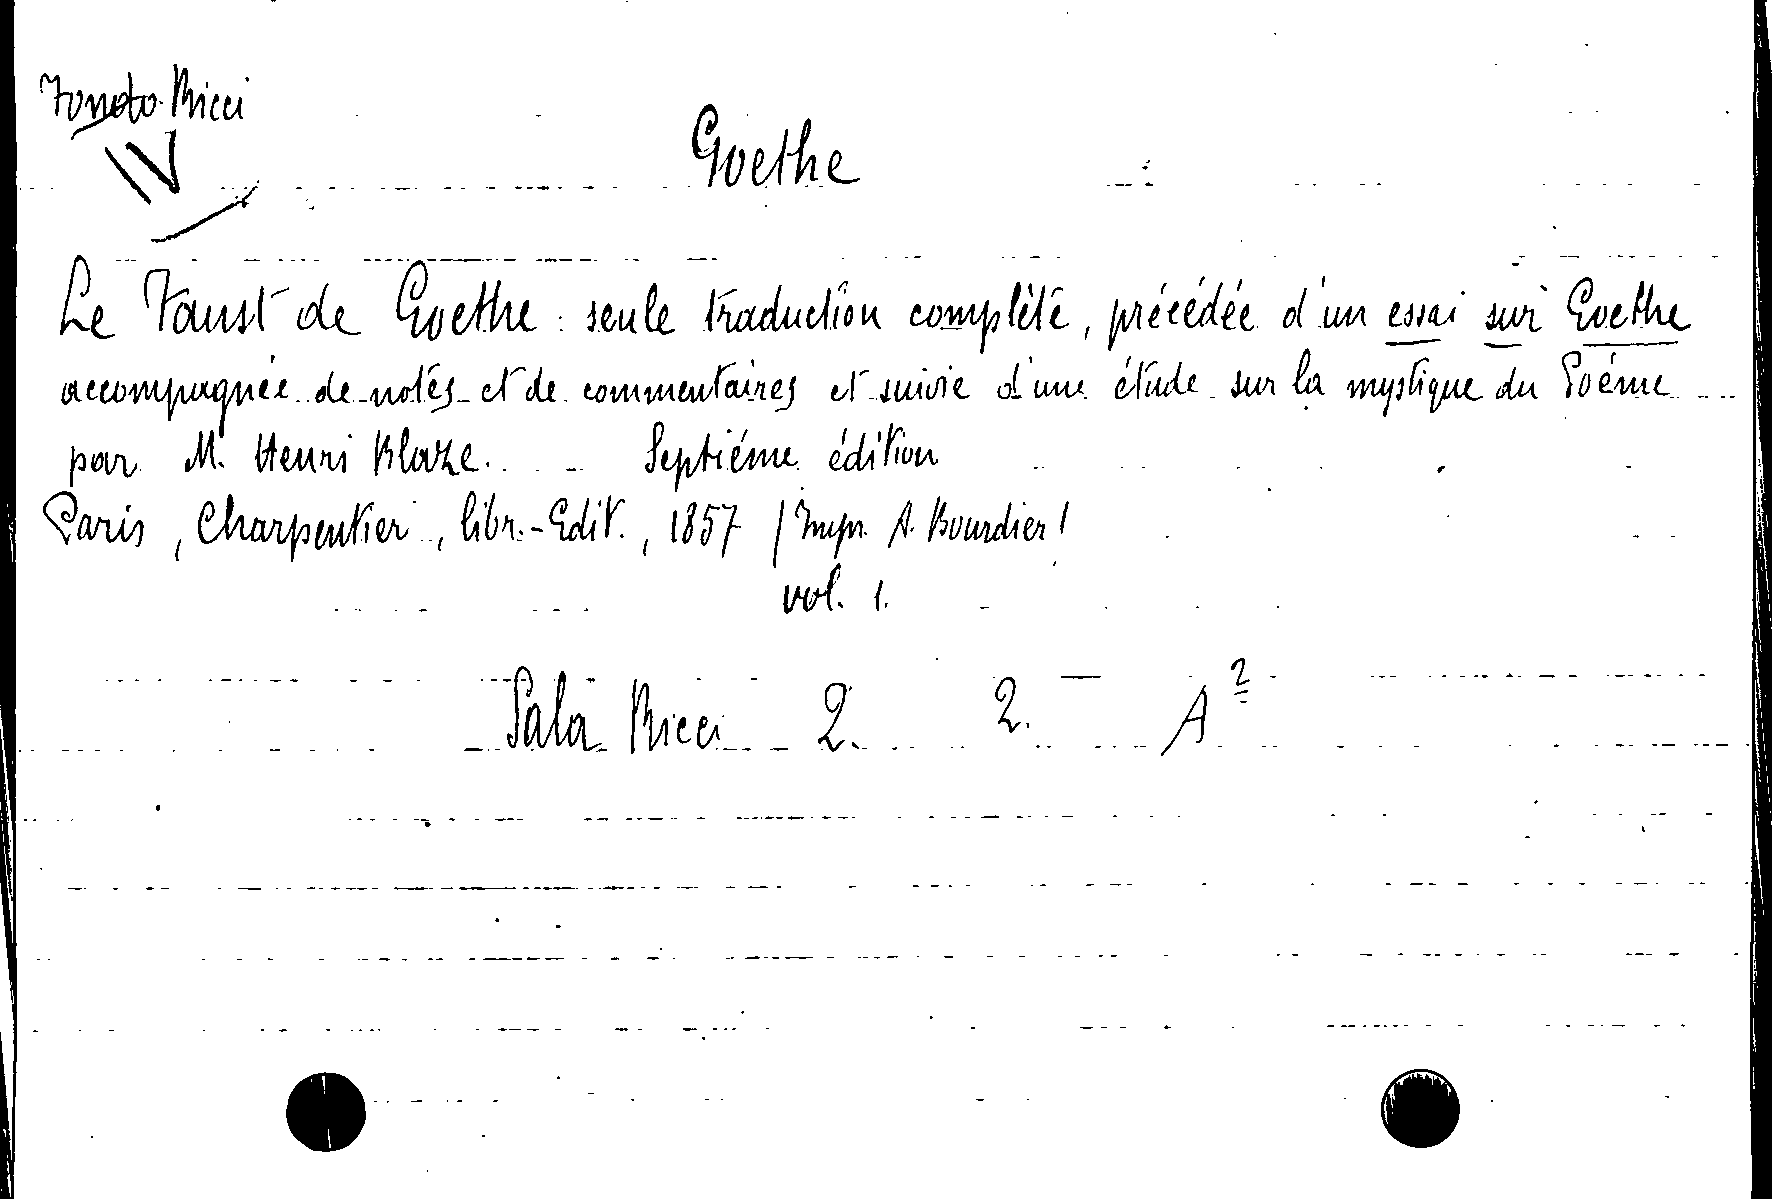 Fondo Ricci
IV
Goethe
Le Faust de Goethe : seule traduction complète, précédée d'un essai sur Goethe
accompagnée de notes et de commentaires et suivie d'une étude sur la mystique du Poéme
par M. Henri Blaze. Septiéme édition
Paris, Charpentier, libr.-Edit., 1857 / Impr. A. Bourdier /
vol. 1.
Sala Ricci 2. 2. A 2